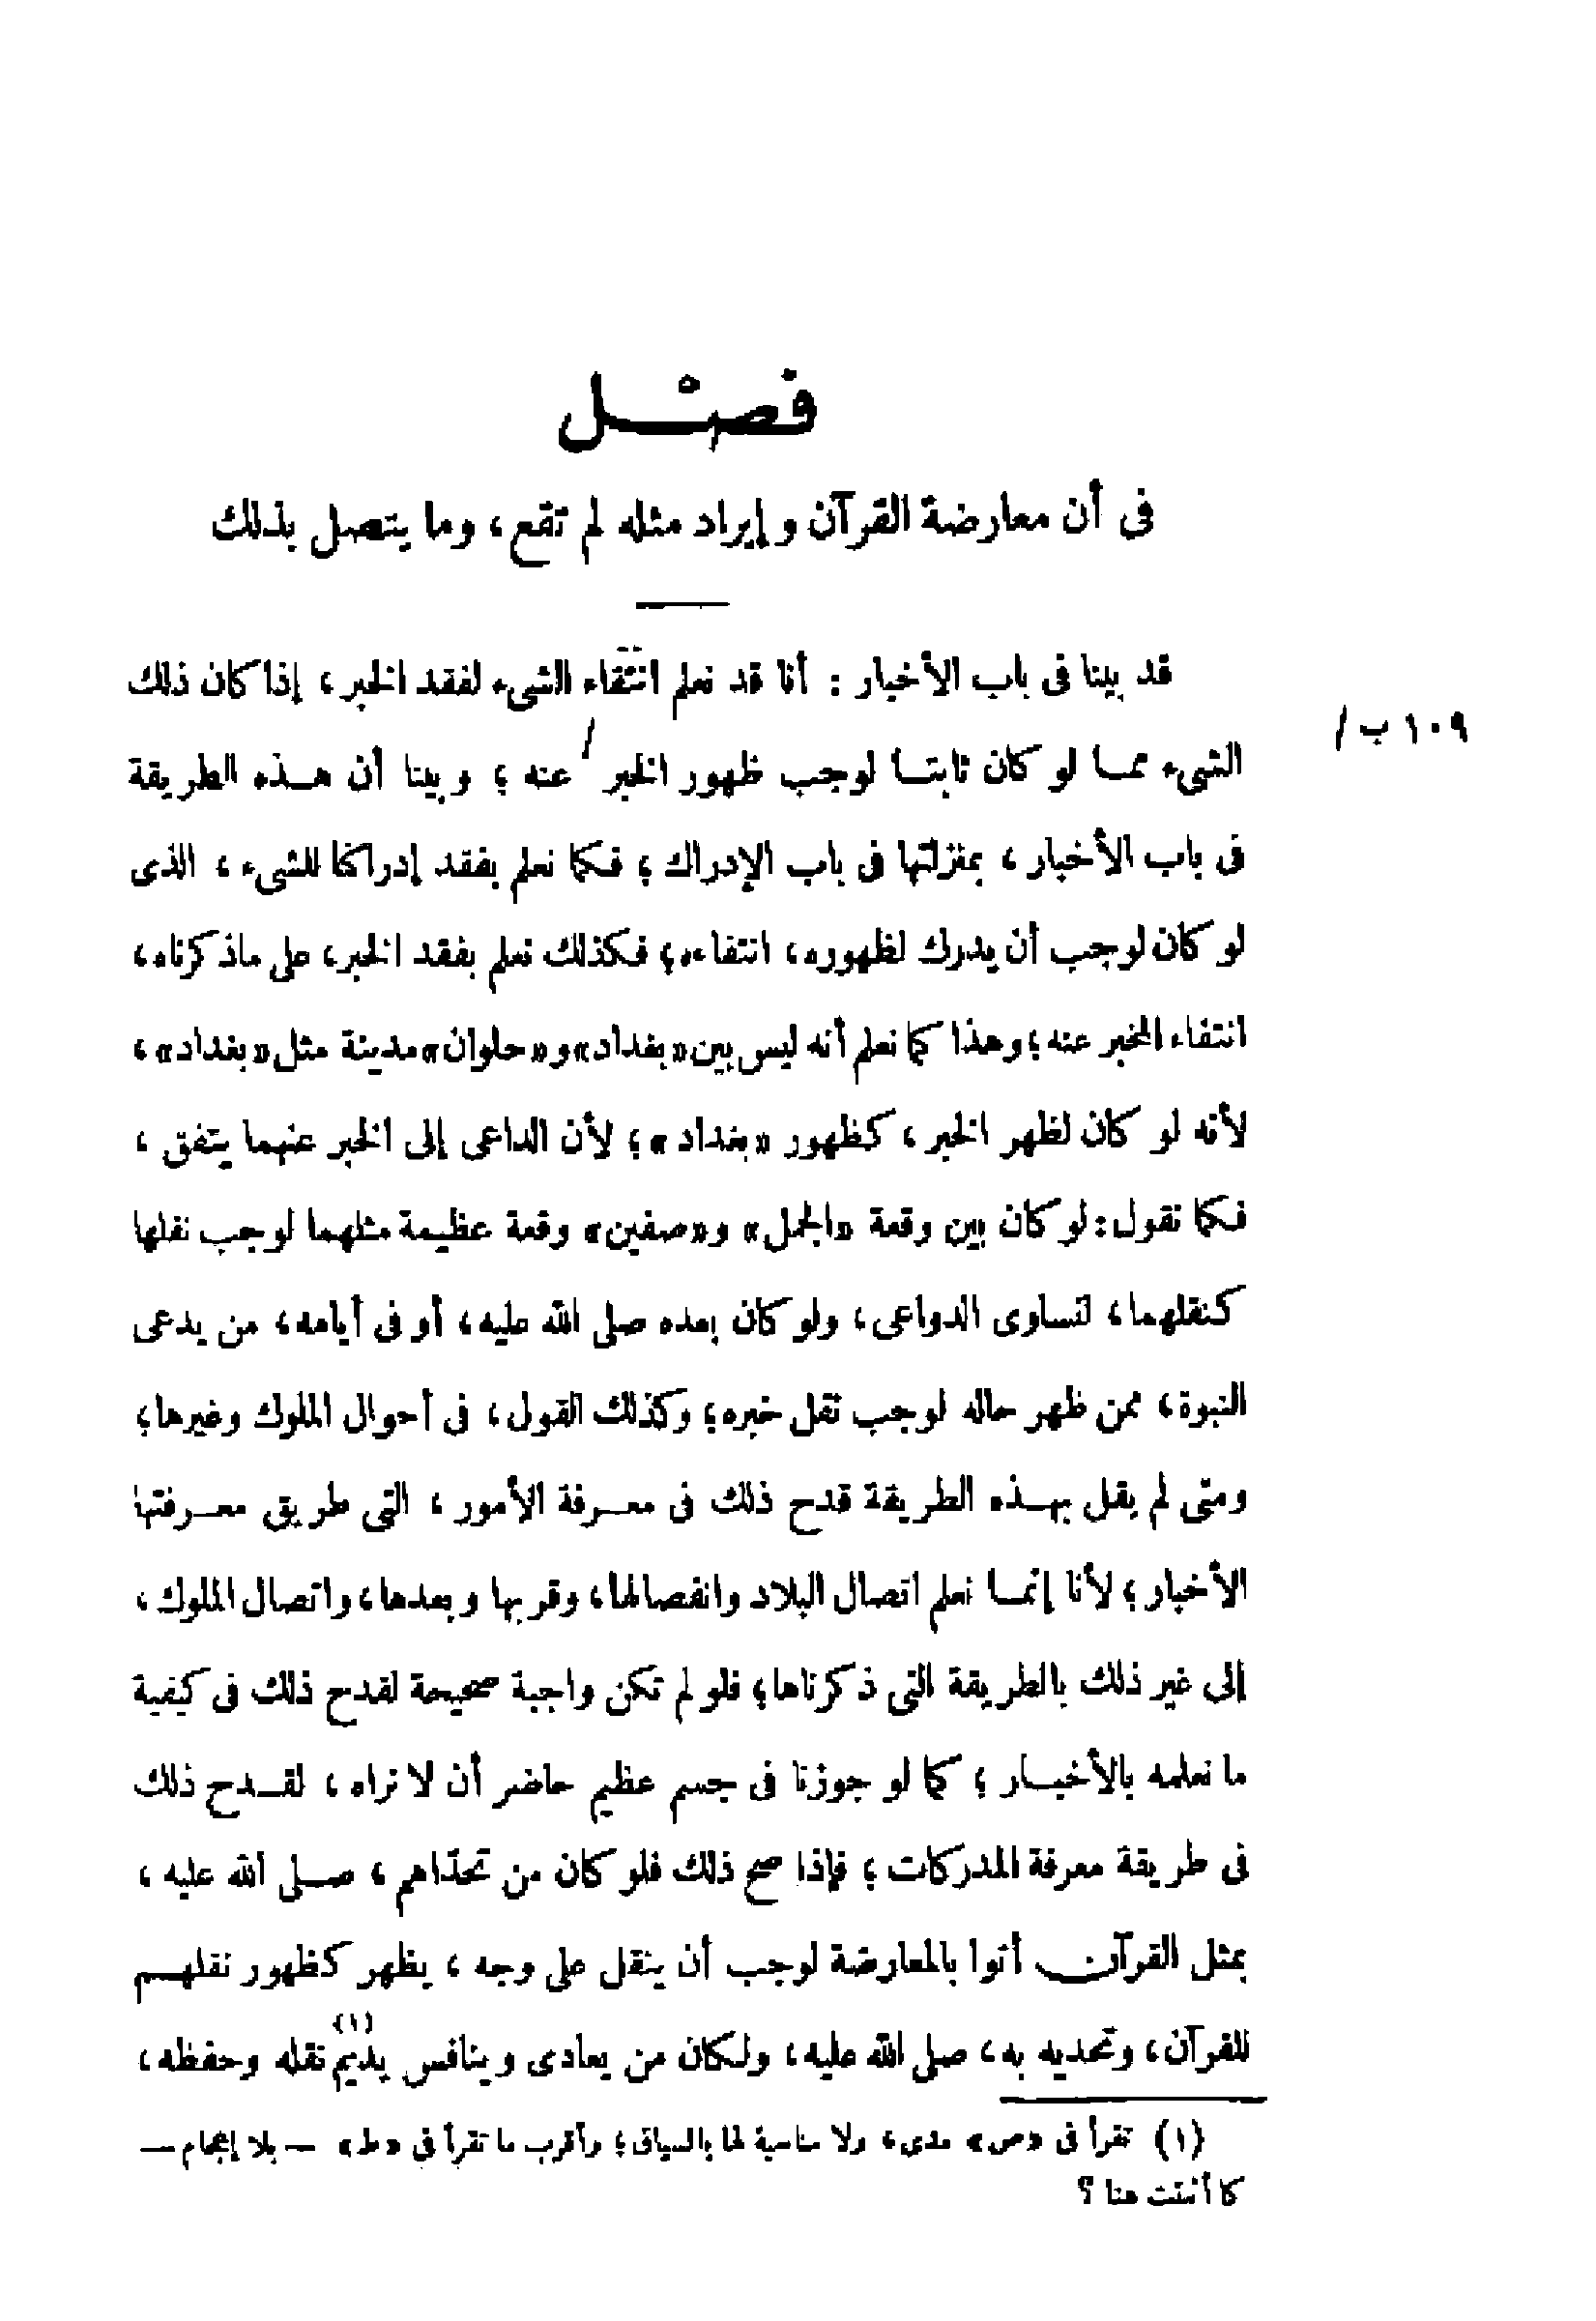 فصْل
فى أن معارضة القرآن وإيراد مثله لم تقع، وما يتصل بذلك
قد بينا فى باب الأخبار : أنا قد نعلم انتفاء الشىء لفقد الخبر، إذا كان ذلك
١٠٩ ب /
الشىء مما لو كان ثابتا لوجب ظهور الخبر / عنه ؛ وبينا أن هذه الطريقة
فى باب الأخبار ، بمنزلتها فى باب الإدراك ؛ فكما نعلم بفقد إدراكنا للشىء ، الذى
لو كان لوجب أن يدرك لظهوره، انتفاءه؛ فكذلك نعلم بفقد الخبر، على ماذكرناه،
انتفاء المخبر عنه ؛ وهذا كما نعلم أنه ليس بين «بغداد» و«حلوان» مدينة مثل «بغداد» ،
لأنه لو كان لظهر الخبر ، كظهور «بغداد» ؛ لأن الداعى إلى الخبر عنهما يتفق ،
فكما نقول : لو كان بين وقعة «الجمل» و«صفين» وقعة عظيمة مثلهما لوجب نقلها
كنقلهما، لتساوى الدواعى، ولو كان بعده صلى الله عليه، أو فى أيامه، من يدعى
النبوة، ممن ظهر حاله لوجب نقل خبره؛ وكذلك القول، فى أحوال الملوك وغيرها؛
ومتى لم يقل بهذه الطريقة قدح ذلك فى معرفة الأمور ، التى طريق معرفتها
الأخبار ؛ لأنا إنما نعلم اتصال البلاد وانفصالها، وقربها وبعدها، واتصال الملوك،
إلى غير ذلك بالطريقة التى ذكرناها؛ فلو لم تكن واجبة صحيحة لقدح ذلك فى كيفية
ما نعلمه بالأخبار ؛ كما لو جوزنا فى جسم عظيم حاضر أن لا نراه ، لقدح ذلك
فى طريقة معرفة المدركات ؛ فإذا صح ذلك فلو كان من تحدّاهم ، صلى الله عليه ،
بمثل القرآن أتوا بالمعارضة لوجب أن ينقل على وجه ، يظهر كظهور نقلهم
للقرآن، وتحديه به، صلى الله عليه، ولكان من يعادى وينافس يديم(١) نقله وحفظه،
(١) تقرأ فى «ص» مدى، ولا مناسبة لها بالسياق؛ وأقرب ما تقرأ فى «ط» — بلا إعجام —
كما أثبتت هنا ؟